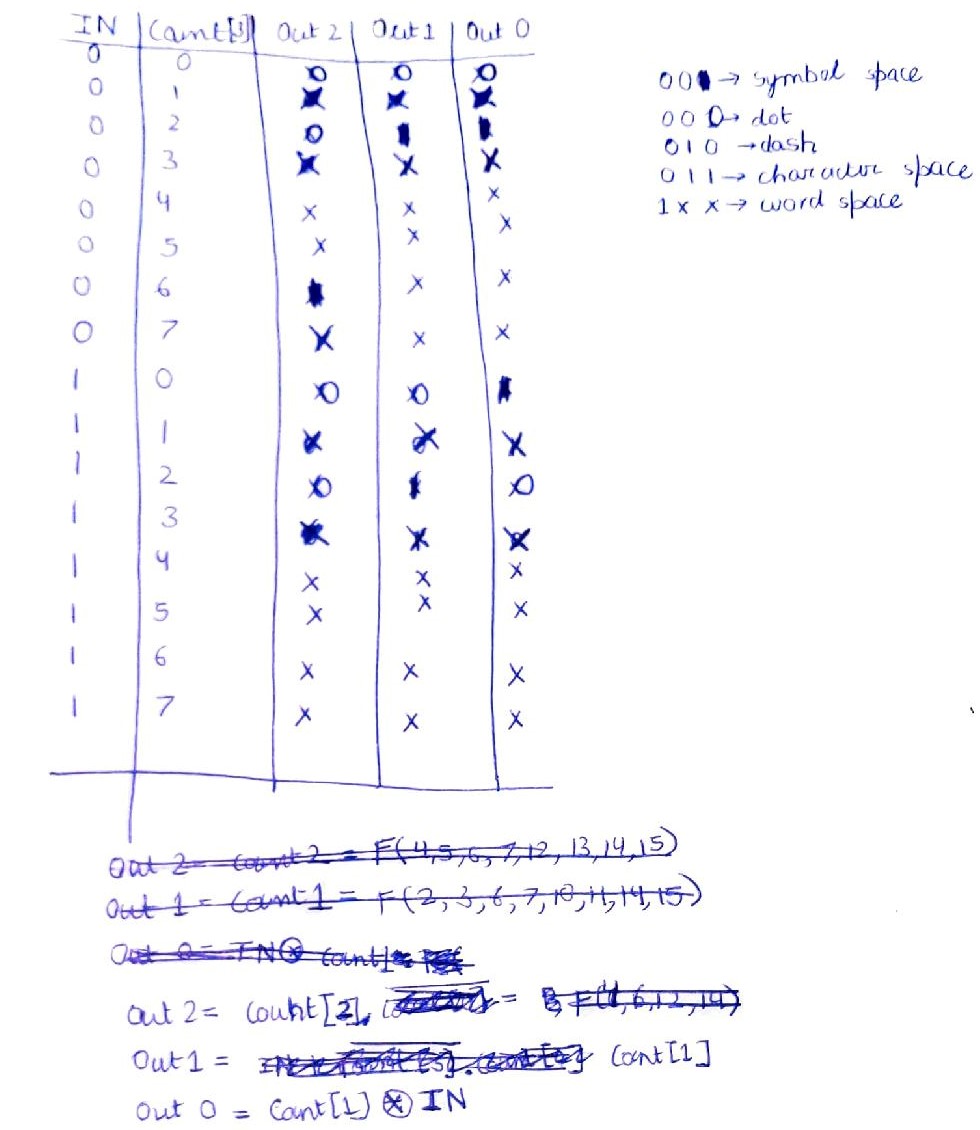 IN | Count[3] | Out 2 | Out 1 | Out 0
0 0 0 0 0
0 1 x x x
0 2 0 1 1
0 3 x x x
0 4 x x x
0 5 x x x
0 6 1 x x
0 7 x x x
1 0 0 0 1
1 1 x x x
1 2 0 1 0
1 3 x x x
1 4 x x x
1 5 x x x
1 6 x x x
1 7 x x x
000 → symbol space
00 → dot
010 → dash
011 → character space
1x x → word space
Out 2 = Count 2 = F(4,5,6,7,12,13,14,15)
Out 1 = Count 1 = F(2,3,6,7,10,11,14,15)
Out 0 = IN Count1
Out 2 = Count[2]
Out 1 = Cont[1]
Out 0 = Cont[1] ⊗ IN